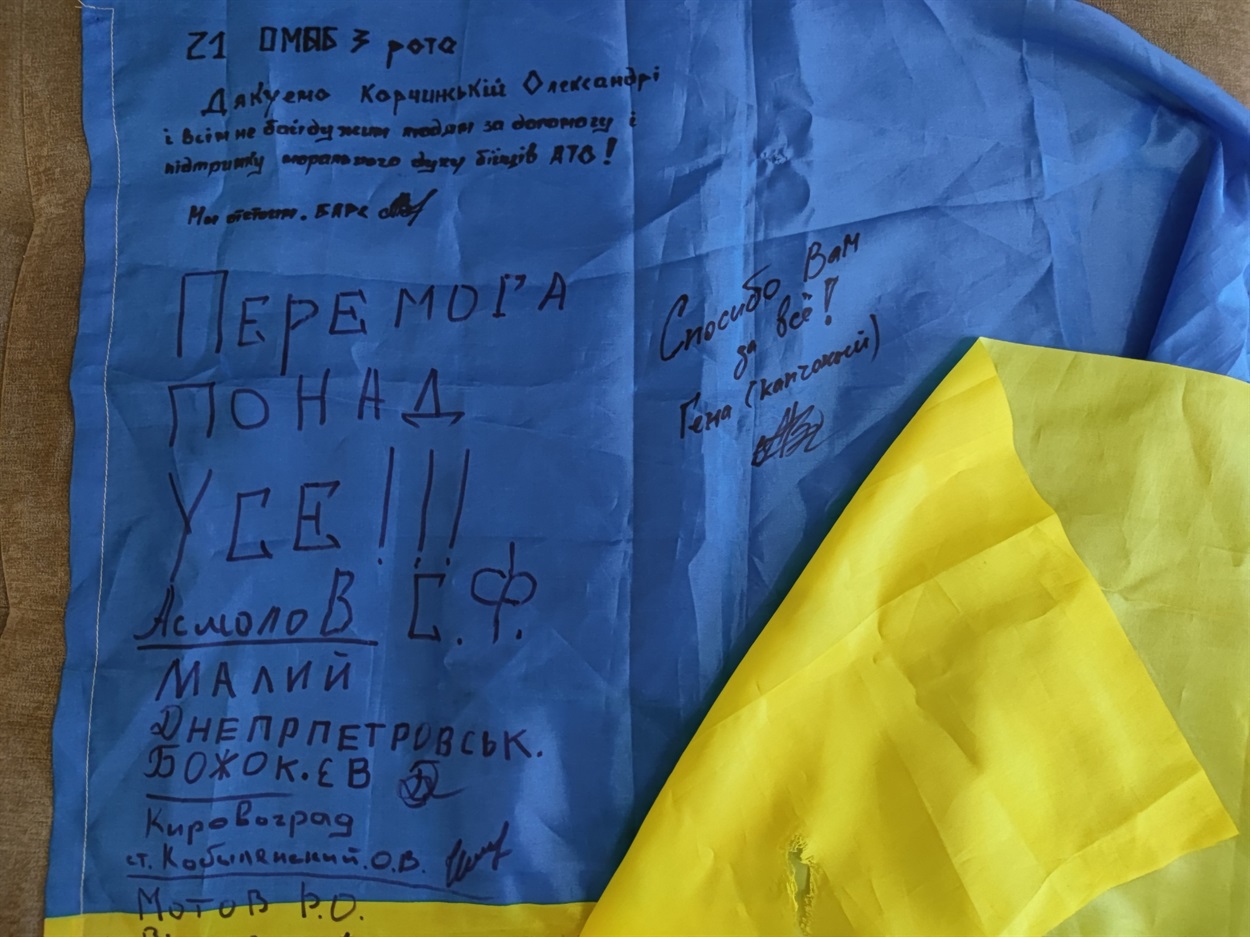 21 ОМПБ 3 рота
Дякуемо Корчинській Олександрі
і всім не байдужим людям за допомогу і
підтримку морального духу бійців АТО!
Ми . БАРС
ПЕРЕМОГА
ПОНАД
УСЕ!!!
АсмолоВ С.Ф.
МАЛИЙ
ДНЕПРПЕТРОВСЬК.
БОЖОК.ЄВ
КироВоград
ст. Кобылянский.О.В.
МотоВ Р.О.
Спосибо Вам
за всё!
Гена (капчоный)